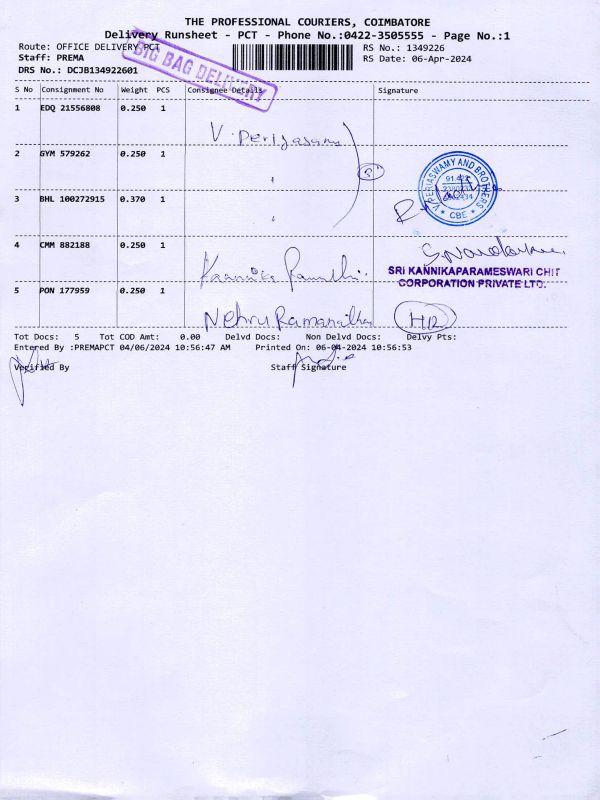 THE PROFESSIONAL COURIERS, COIMBATORE
Delivery Runsheet - PCT - Phone No.:0422-3505555 - Page No.:1
Route: OFFICE DELIVERY PCT
RS No.: 1349226
Staff: PREMA
RS Date: 06-Apr-2024
DRS No.: DCJB134922601
BIG BAG DELIVERY
S No Consignment No Weight PCS Consignee Details Signature
1 EDQ 21556808 0.250 1
V. Periyasamy
2 GYM 579262 0.250 1
V. PERIASWAMY AND BROTHERS
★ CBE ★
3 BHL 100272915 0.370 1
4 CMM 882188 0.250 1
Kannika
SRI KANNIKAPARAMESWARI CHIT
CORPORATION PRIVATE LTD.
5 PON 177959 0.250 1
Nehru Ramanathan
Tot Docs: 5 Tot COD Amt: 0.00 Delvd Docs: Non Delvd Docs: Delvy Pts:
Entered By :PREMAPCT 04/06/2024 10:56:47 AM Printed On: 06-04-2024 10:56:53
Verified By Staff Signature